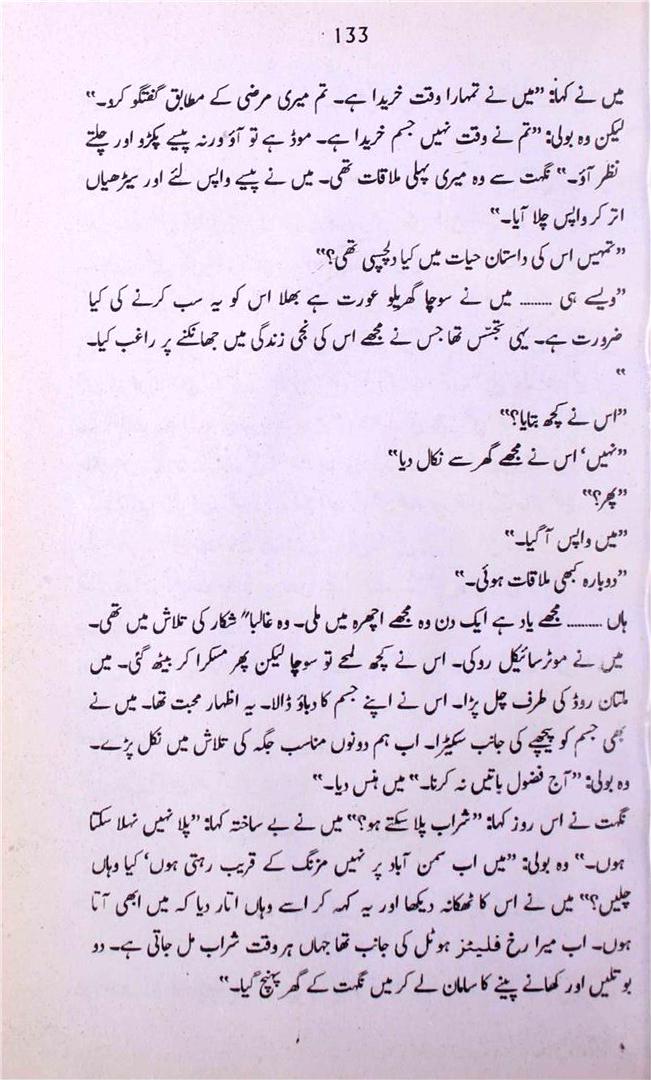 133
میں نے کہا: ”میں نے تمہارا وقت خریدا ہے۔ تم میری مرضی کے مطابق گفتگو کرو۔“
لیکن وہ بولی: ”تم نے وقت نہیں جسم خریدا ہے۔ موڈ ہے تو آؤ ورنہ پیسے پکڑو اور چلتے
نظر آؤ۔“ نگہت سے وہ میری پہلی ملاقات تھی۔ میں نے پیسے واپس لئے اور سیڑھیاں
اتر کر واپس چلا آیا۔“
”تمہیں اس کی داستان حیات میں کیا دلچسپی تھی؟“
”ویسے ہی ........ میں نے سوچا گھریلو عورت ہے بھلا اس کو یہ سب کرنے کی کیا
ضرورت ہے۔ یہی تجسّس تھا جس نے مجھے اس کی نجی زندگی میں جھانکنے پر راغب کیا۔
“
”اس نے کچھ بتایا؟“
”نہیں‘ اس نے مجھے گھر سے نکال دیا“
”پھر؟“
”میں واپس آ گیا۔“
”دوبارہ کبھی ملاقات ہوئی۔“
ہاں ........ مجھے یاد ہے ایک دن وہ مجھے اچھرہ میں ملی۔ وہ غالبا“ شکار کی تلاش میں تھی۔
میں نے موٹر سائیکل روکی۔ اس نے کچھ لمحے تو سوچا لیکن پھر مسکرا کر بیٹھ گئی۔ میں
ملتان روڈ کی طرف چل پڑا۔ اس نے اپنے جسم کا دباؤ ڈالا۔ یہ اظہار محبت تھا۔ میں نے
بھی جسم کو پیچھے کی جانب سکیڑا۔ اب ہم دونوں مناسب جگہ کی تلاش میں نکل پڑے۔
وہ بولی: ”آج فضول باتیں نہ کرنا۔“ میں ہنس دیا۔“
نگہت نے اس روز کہا: ”شراب پلا سکتے ہو؟“ میں نے بے ساختہ کہا: ”پلا نہیں نہلا سکتا
ہوں۔“ وہ بولی: ”میں اب سمن آباد پر نہیں مزنگ کے قریب رہتی ہوں‘ کیا وہاں
چلیں؟“ میں نے اس کا ٹھکانہ دیکھا اور یہ کہہ کر اسے وہاں اتار دیا کہ میں ابھی آتا
ہوں۔ اب میرا رخ فلیٹز ہوٹل کی جانب تھا جہاں ہر وقت شراب مل جاتی ہے۔ دو
بوتلیں اور کھانے پینے کا سامان لے کر میں نگہت کے گھر پہنچ گیا۔“